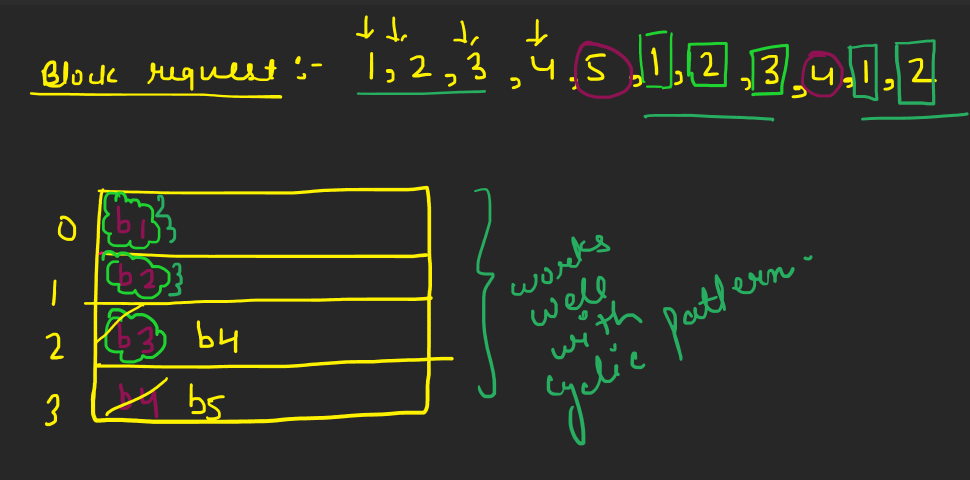 Block request :- 1, 2, 3, 4, 5, 1, 2, 3, 4, 1, 2
0 b1
1 b2
2 b3 b4
3 b4 b5
works
well
with
cyclic pattern.